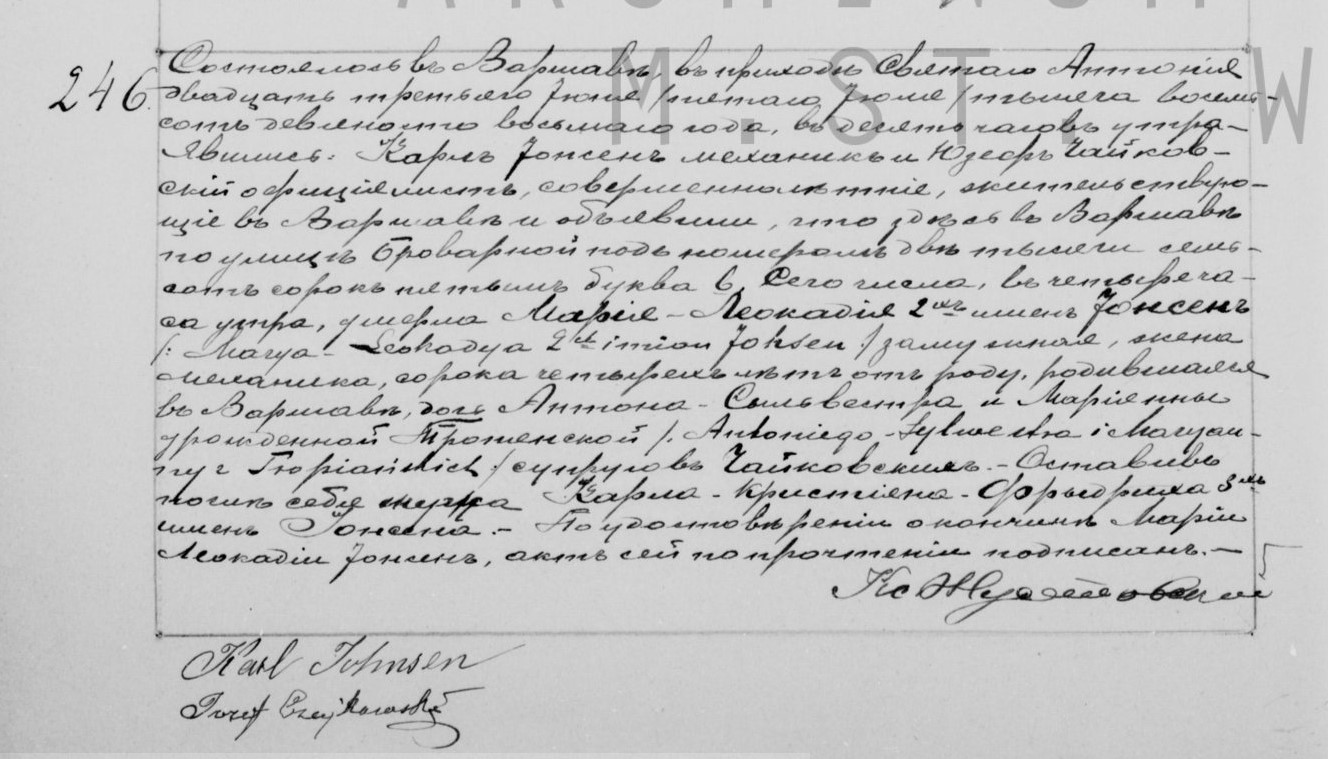 ARCHIWUM
M.ST.W
246.
Состоялось въ Варшавѣ, въ приходѣ Святаго Антонія
двадцать третьяго Іюня /пятаго Іюля/ тысяча восемь-
сотъ девяносто восьмаго года, въ десять часовъ утра –
Явились: Карлъ Іонсенъ механикъ и Юзефъ Чайков-
скій офиціялистъ, совершеннолѣтніе, жительствую-
щіе въ Варшавѣ и объявили, что здѣсь въ Варшавѣ
по улицѣ Броварной подъ номеромъ двѣ тысячи семь-
сотъ сорокъ пятымъ буква в, Сего числа, въ четыре ча-
са утра, умерла Марія-Леокадія 2хъ именъ Іонсенъ
/: Marya-Leokadya 2ch imion Johsen :/ замужная, жена
механика, сорока четырехъ лѣтъ отъ роду, родившаяся
въ Варшавѣ, дочь Антона-Сыльвестра и Маріянны
урожденной /: Antoniego-Sylwestra i Maryan-
ny z :/ супруговъ Чайковскихъ. – Оставивъ
послѣ себя мужа Карла-Кристіяна-Фрыдриха 3хъ
именъ Іонсена. – По удостовѣреніи о кончинѣ Маріи
Леокадіи Іонсенъ, актъ сей по прочтеніи подписанъ. –
Кс
Karl Johnsen
Józef Czajkowski